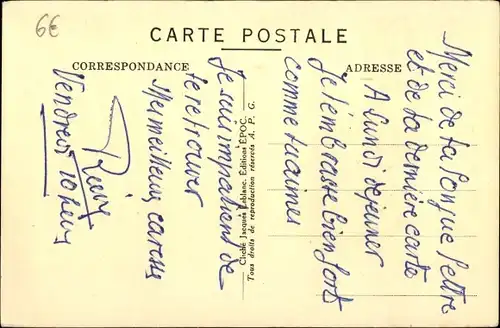 6€
CARTE POSTALE
CORRESPONDANCE
ADRESSE
Merci de ta longue lettre
et de ta dernière carte
A lundi déjeuner
Je t'embrasse bien fort
comme tu aimes
Je suis impatient de
te retrouver
Mes meilleures caresses
Vendredi 10 heures
Cliché Jacques Leblanc. Éditions EPOC.
Tous droits de reproduction réservés A. P. G.